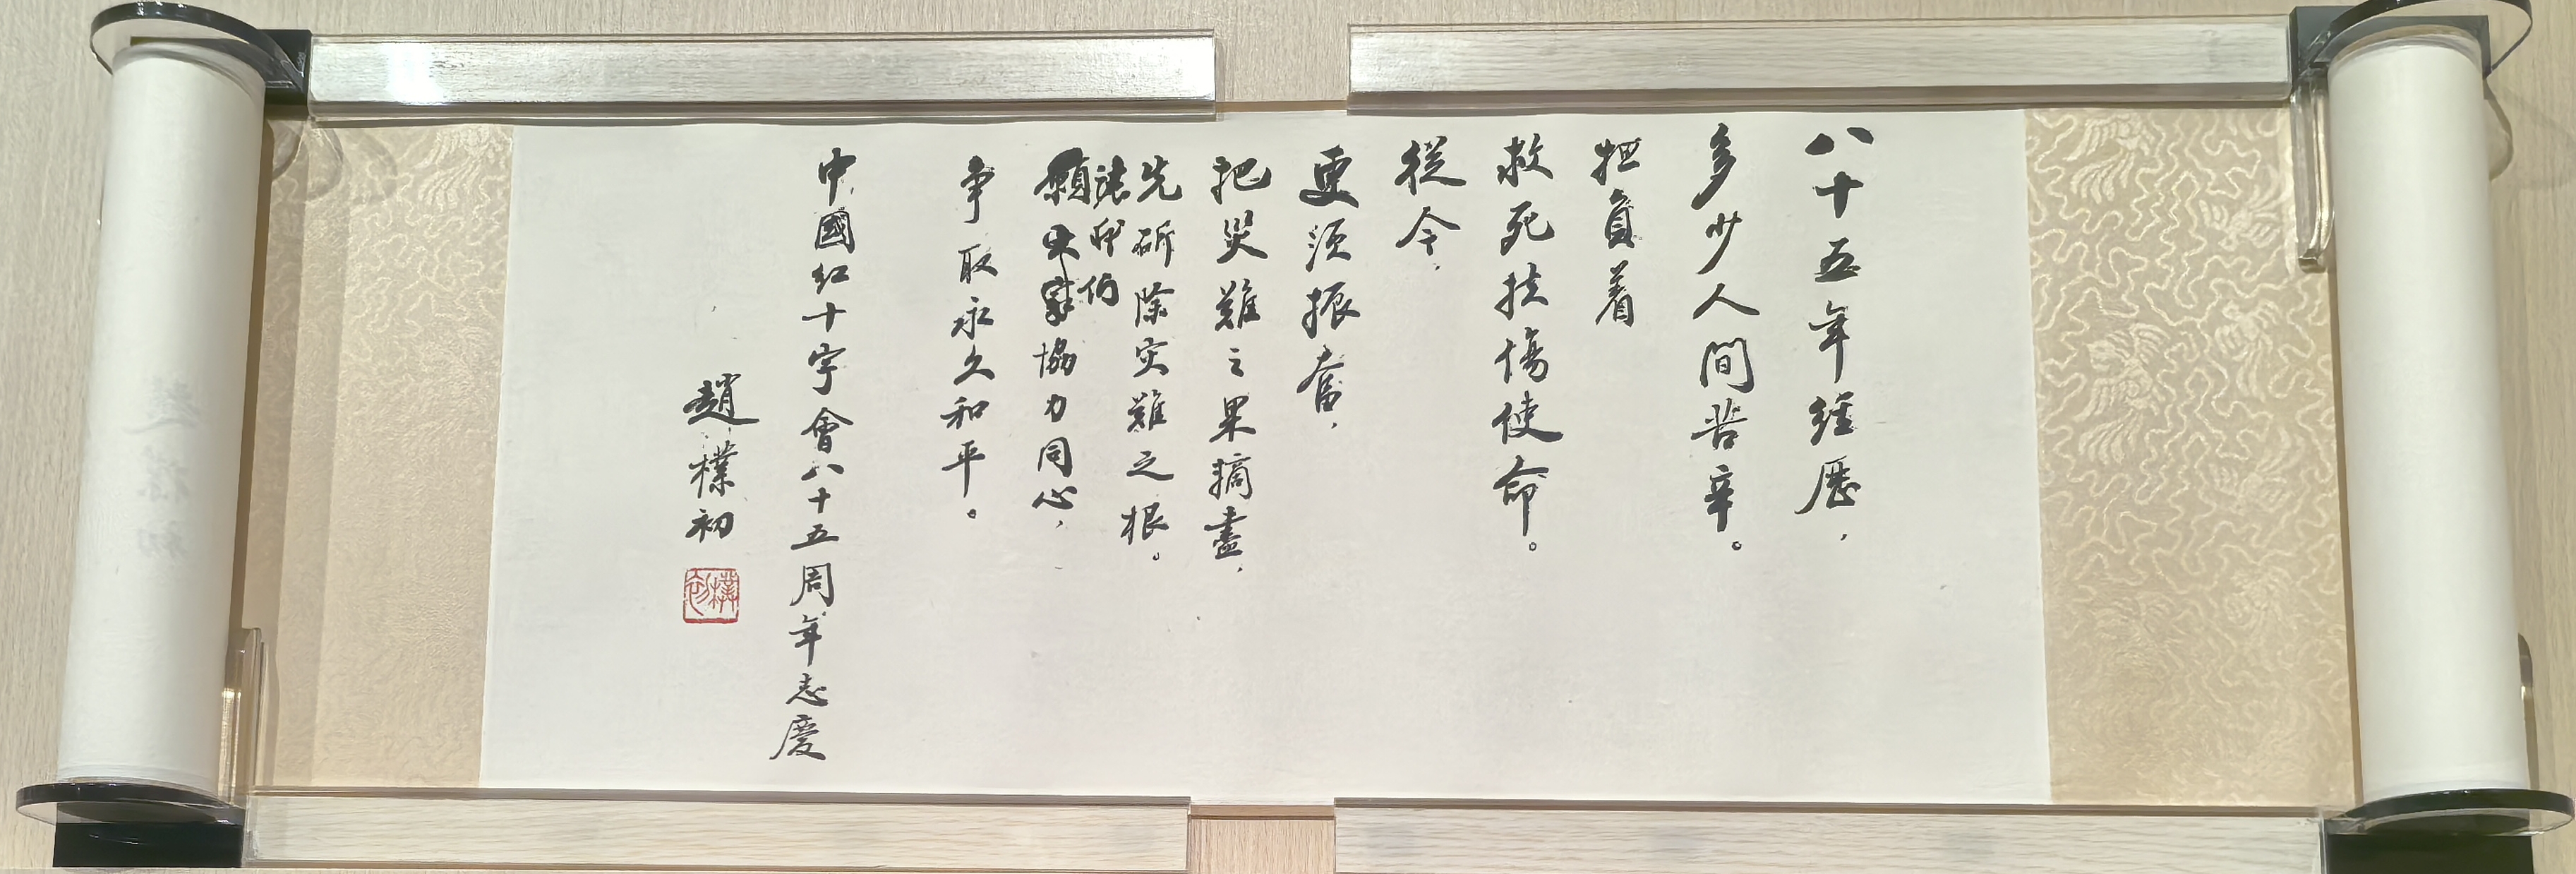 八十五年經歷，
多少人間苦辛。
担負着
救死扶傷使命。
從今，
更須振奮，
把災難之果摘盡，
先斫除灾難之根。
讓我们
願大家協力同心，
争取永久和平。
中國红十字會八十五周年志慶
趙樸初
樸初